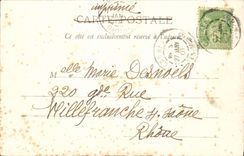 Imprimé
CARTE POSTALE
Ce côté est exclusivement réservé à l'adresse
Melle Marie Desvoels
320 gde Rue
Villefranche s/Saône
Rhône